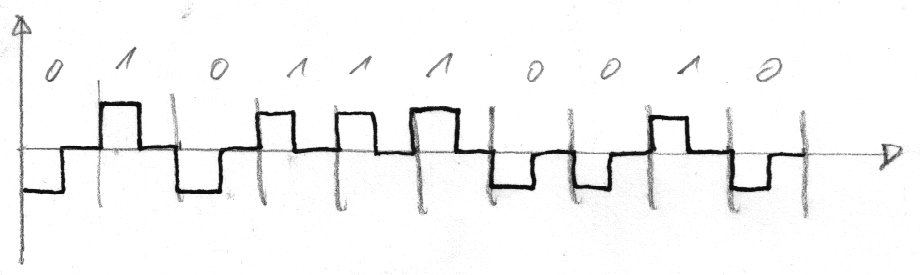 0 1 0 1 1 1 0 0 1 0